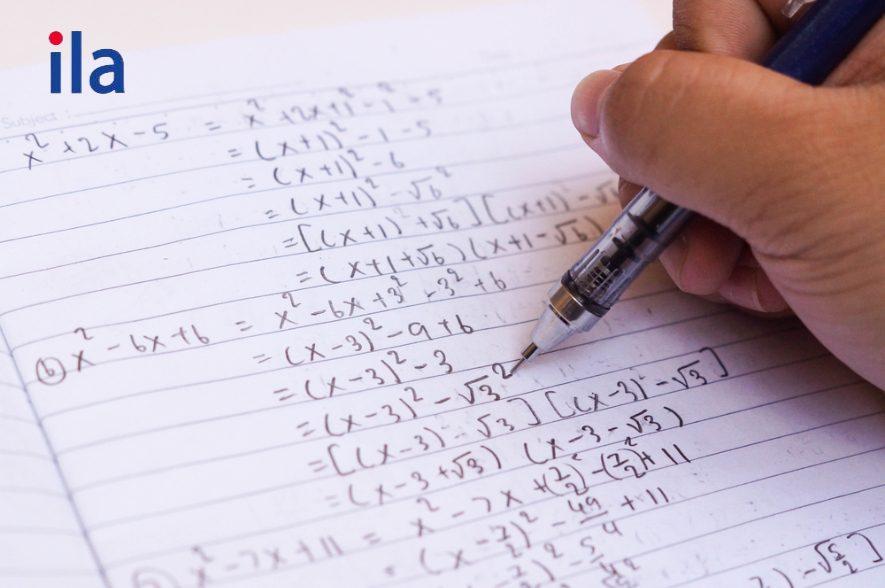 ila
Subject :
x² + 2x - 5 = x² + 2x + 1² - 1² - 5
= (x+1)² - 1 - 5
= (x+1)² - 6
= (x+1)² - √6²
= [(x+1)² + √6] [(x+1)² - √6
= (x+1+√6) (x+1-√6)
(b) x² - 6x + 6 = x² - 6x + 3² - 3² + 6
= (x-3)² - 9 + 6
= (x-3)² - 3
= (x-3)² - √3²
= [(x-3) - √3] [(x-3) - √3]
= (x-3+√3) (x-3-√3)
x² - 7x + 11 = x² - 7x + (7/2)² - (7/2)² + 11
= (x - 7/2)² - 49/4 + 11